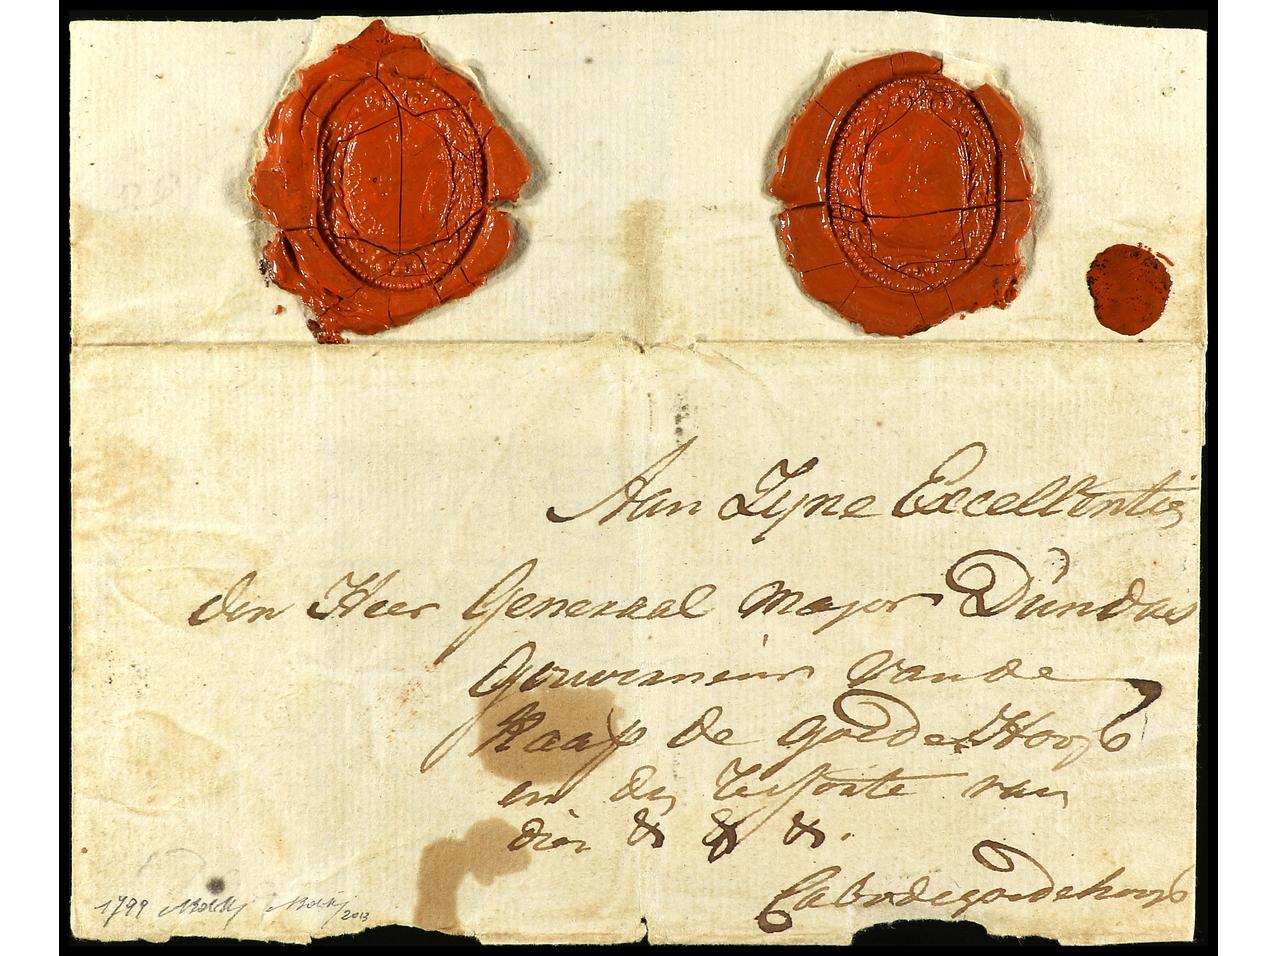 Aan Zyne Excellentie
den Heer Generaal Major Dundas
Gouverneur van de
Kaap de goede Hoop
en den van
dien & & &.
Cabo de goede hoop
1799
2013